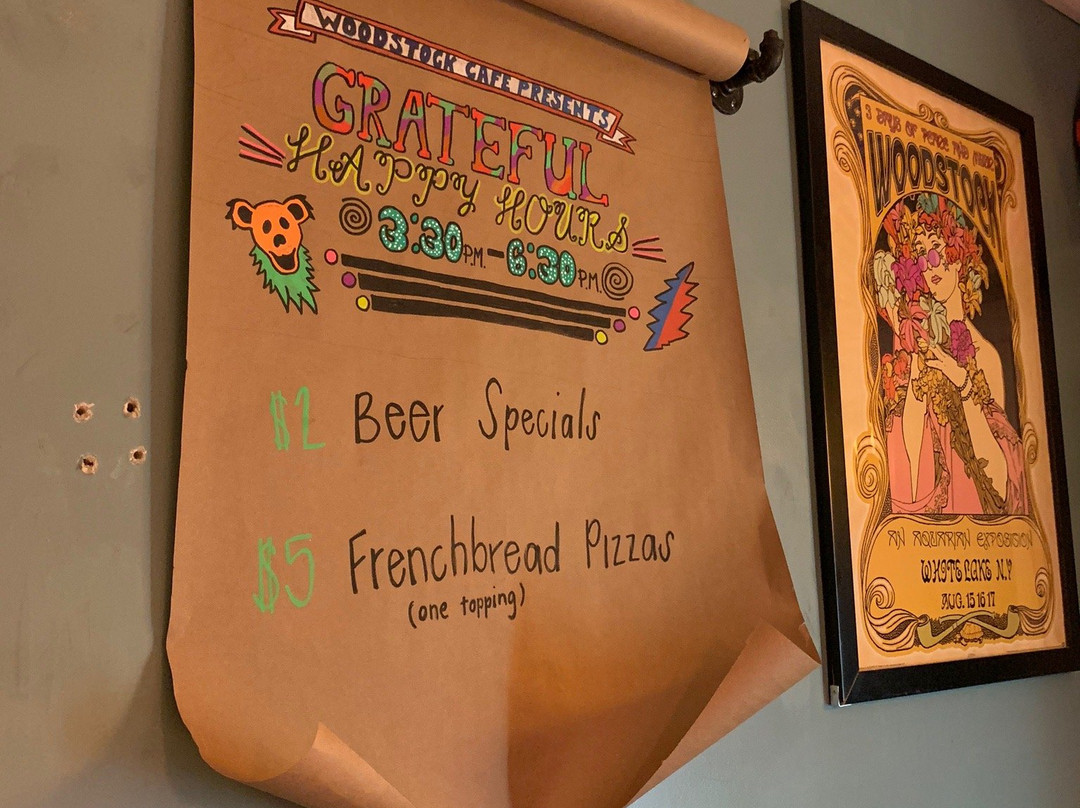 WOODSTOCK CAFE PRESENTS
GRATEFUL
HAPPY HOURS
3:30 P.M. - 6:30 P.M.
$2 Beer Specials
$5 Frenchbread Pizzas
(one topping)
3 DAYS OF PEACE AND MUSIC
WOODSTOCK
AN AQUARIAN EXPOSITION
WHITE LAKE N.Y
AUG. 15 16 17